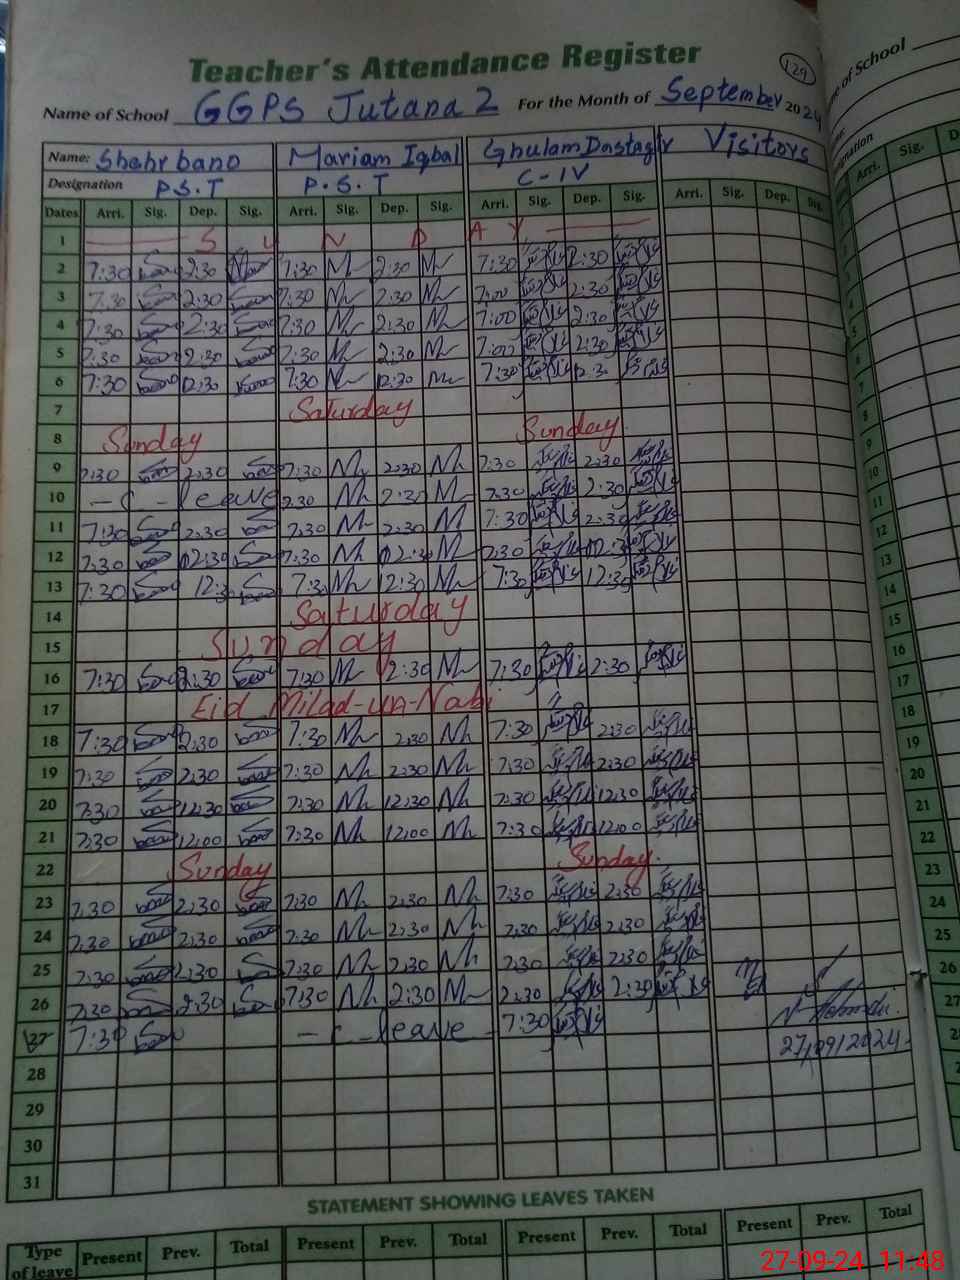 129
Teacher's Attendance Register
Name of School GGPS Jutana 2 For the Month of September 2024
Name: Shahr bano Mariam Iqbal Ghulam Dastagir Visitors
Designation P.S.T P.S.T C-IV
Dates Arri. Sig. Dep. Sig. Arri. Sig. Dep. Sig. Arri. Sig. Dep. Sig. Arri. Sig. Dep. Sig.
1 SUNDAY
2 7:30 2:30 7:30 2:30 7:30 2:30
3 7:30 2:30 7:30 2:30 7:00 2:30
4 7:30 2:30 7:30 2:30 7:00 2:30
5 7:30 2:30 7:30 2:30 7:00 2:30
6 7:30 12:30 7:30 12:30 7:30 12:30
7 Saturday
8 Sunday Sunday.
9 7:30 2:30 7:30 2:30 7:30 2:30
10 -C-leave 7:30 2:30 7:30 2:30
11 7:30 2:30 7:30 2:30 7:30 2:30
12 7:30 02:30 7:30 02:30 7:30 02:30
13 7:30 12:30 7:30 12:30 7:30 12:30
14 Saturday
15 Sunday
16 7:30 2:30 7:30 2:30 7:30 2:30
17 Eid Milad-un-Nabi
18 7:30 2:30 7:30 2:30 7:30 2:30
19 7:30 2:30 7:30 2:30 7:30 2:30
20 7:30 12:30 7:30 12:30 7:30 12:30
21 7:30 12:00 7:30 12:00 7:30 12:00
22 Sunday Sunday.
23 7:30 2:30 7:30 2:30 7:30 2:30
24 7:30 2:30 7:30 2:30 7:30 2:30
25 7:30 2:30 7:30 2:30 7:30 2:30
26 7:30 2:30 7:30 2:30 7:30 2:30
27 7:30 -C-leave 7:30
27/09/2024
28
29
30
31
STATEMENT SHOWING LEAVES TAKEN
Type of leave Present Prev. Total Present Prev. Total Present Prev. Total Present Prev. Total
27-09-24 11:48